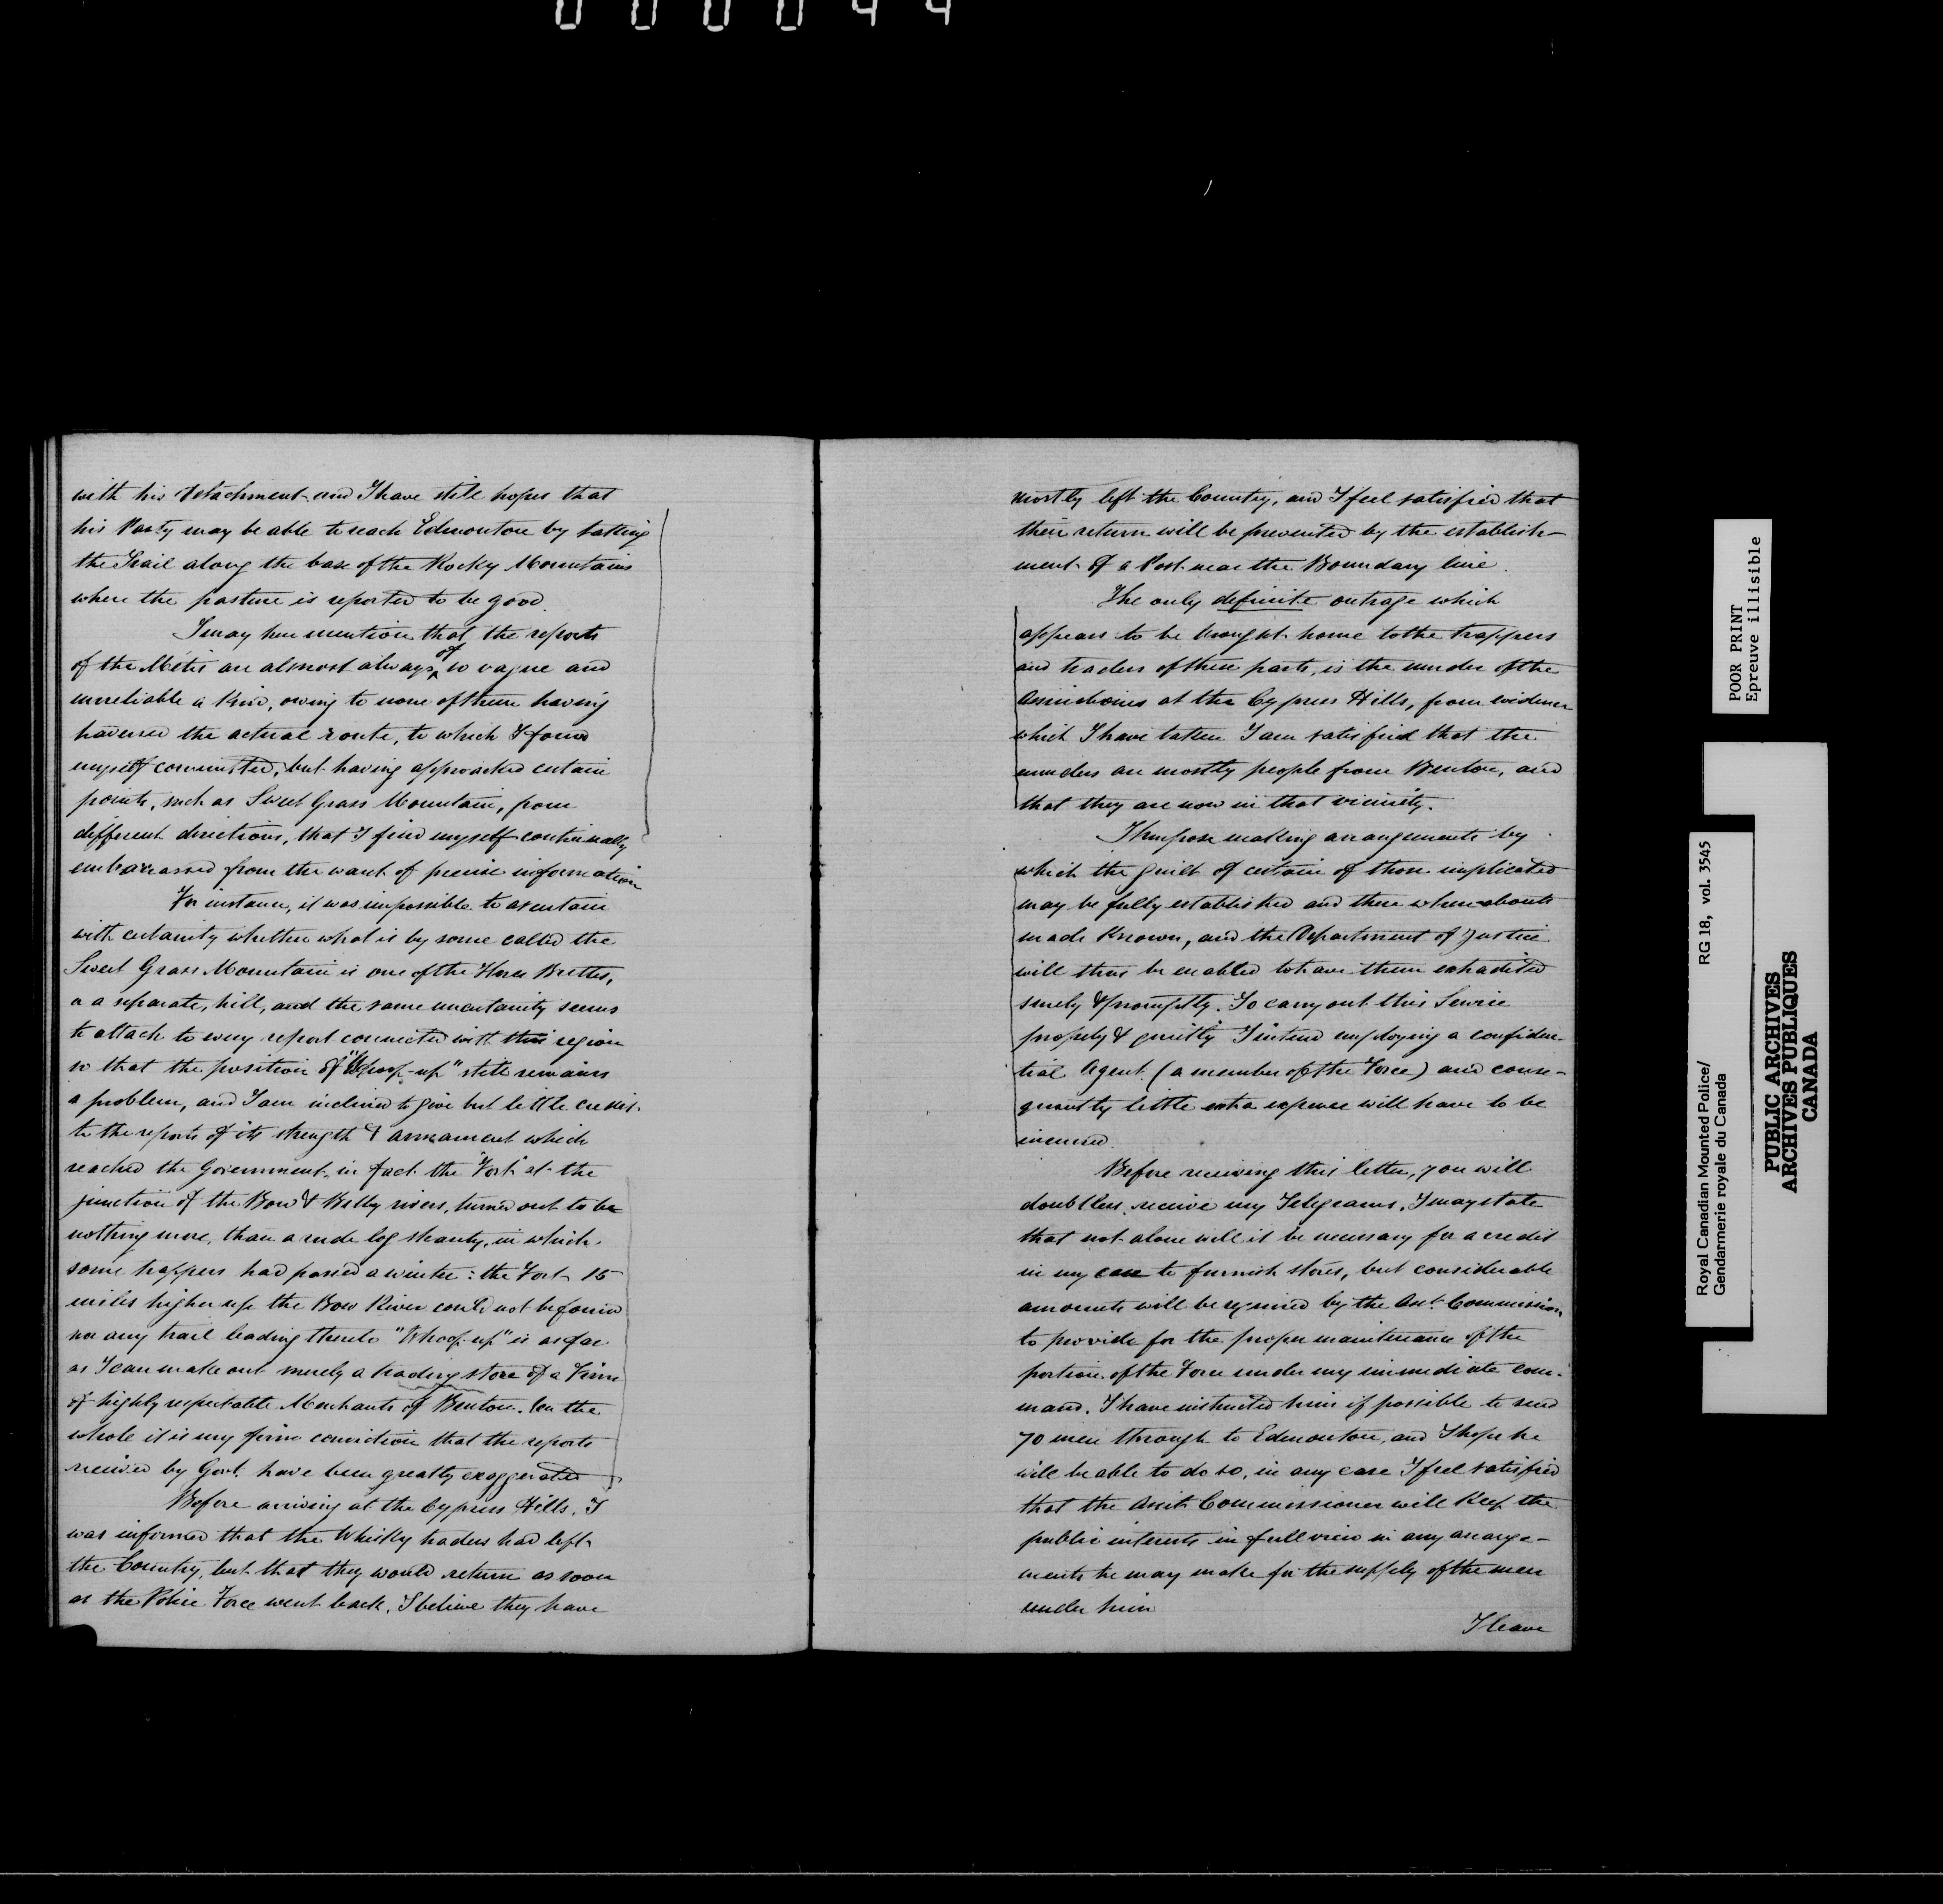 000044
with his detachment and I have still hopes that
his Party may be able to reach Edmonton by taking
the Trail along the base of the Rocky Mountains
where the pasture is reported to be good.
I may here mention that the reports
of the Métis are almost always of so vague and
unreliable a kind, owing to none of them having
traversed the actual route, to which I found
myself committed, but having approached certain
points, such as Sweet Grass Mountain, from
different directions, that I find myself continually
embarrassed from the want of precise information
For instance, it was impossible to ascertain
with certainty whether what is by some called the
Sweet Grass Mountain is one of the Three Buttes,
or a separate, hill, and the same uncertainty seems
to attach to every report connected with this region
so that the position of "Whoop-up" still remains
a problem, and I am inclined to give but little credit
to the reports of its strength & armament which
reached the Government, in fact the "Fort" at the
junction of the Bow & Belly rivers, turned out to be
nothing more, than a rude log shanty, in which
some trappers had passed a winter: the Fort 15
miles higher up the Bow River could not be found
nor any trail leading thereto "Whoop-up" is as far
as I can make out merely a trading store of a Firm
of highly respectable Merchants of Benton. On the
whole it is my firm conviction that the reports
received by Govt. have been greatly exaggerated
Before arriving at the Cypress Hills, I
was informed that the Whisky traders had left
the Country, but that they would return as soon
as the Police Force went back, I believe they have
mostly left the Country, and I feel satisfied that
their return will be prevented by the establish-
ment of a Post near the Boundary line.
The only definite outrage which
appears to be brought home to the trappers
and traders of these parts, is the murder of the
Assiniboines at the Cypress Hills, from evidence
which I have taken I am satisfied that the
murders are mostly people from Benton, and
that they are now in that vicinity.
I purpose making arrangements by
which the guilt of certain of those implicated
may be fully established and there whereabouts
made known, and the Department of Justice
will thus be enabled to have them extradited
surely & promptly. To carry out this Service
properly & quietly I intend employing a confiden-
tial Agent (a member of the Force) and conse-
quently little extra expense will have to be
incurred.
Before receiving this letter, you will
doubtless receive my Telegrams, I may state
that not alone will it be necessary for a credit
in my case to furnish stores, but considerable
amounts will be required by the Asst. Commission
to provide for the proper maintenance of the
portion of the Force under my immediate com-
mand. I have instructed him if possible to send
70 men through to Edmonton, and I hope he
will be able to do so, in any case I feel satisfied
that the Assit Commissioner will keep the
public interests in full view in any arrange-
ments he may make for the supply of the men
under him
I leave
POOR PRINT
Epreuve illisible
Royal Canadian Mounted Police/ RG 18, vol. 3545
Gendarmerie royale du Canada
PUBLIC ARCHIVES
ARCHIVES PUBLIQUES
CANADA